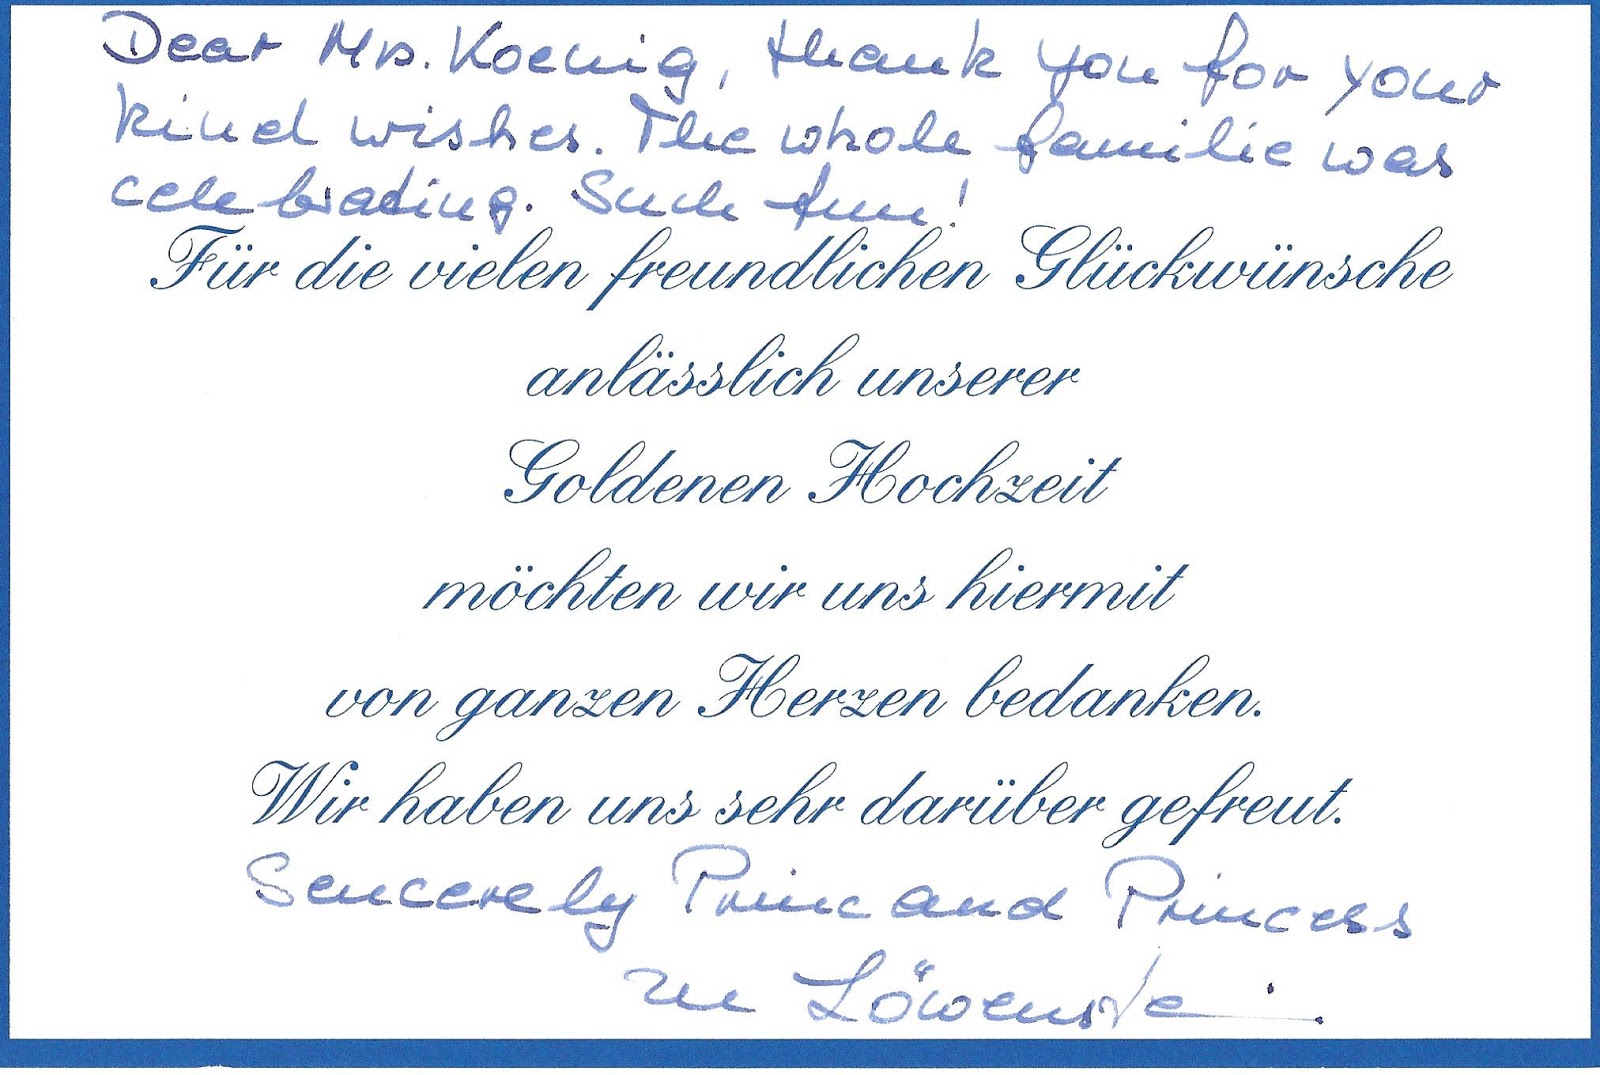 Dear Mrs. Koenig, thank you for your
kind wishes. The whole familie was
celebrating. Such fun!
Für die vielen freundlichen Glückwünsche
anlässlich unserer
Goldenen Hochzeit
möchten wir uns hiermit
von ganzen Herzen bedanken.
Wir haben uns sehr darüber gefreut.
Sencerely Princ and Princess
zu Löwenstein